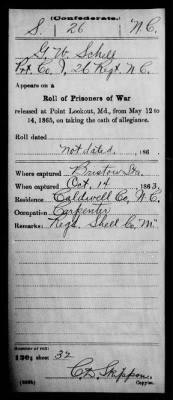 (Confederate.)
S. 26 N.C.
G. W. Schell
Pvt. Co. I, 26 Regt. N.C.
Appears on a
Roll of Prisoners of War
released at Point Lookout, Md., from May 12 to
14, 1865, on taking the oath of allegiance.
Roll dated
Not dated, 186 .
Where captured Bristow Sta.
When captured Oct. 14 1863.
Residence Caldwell Co., N.C.
Occupation Carpenter
Remarks:
Number of roll:
sheet 32
Copyist.